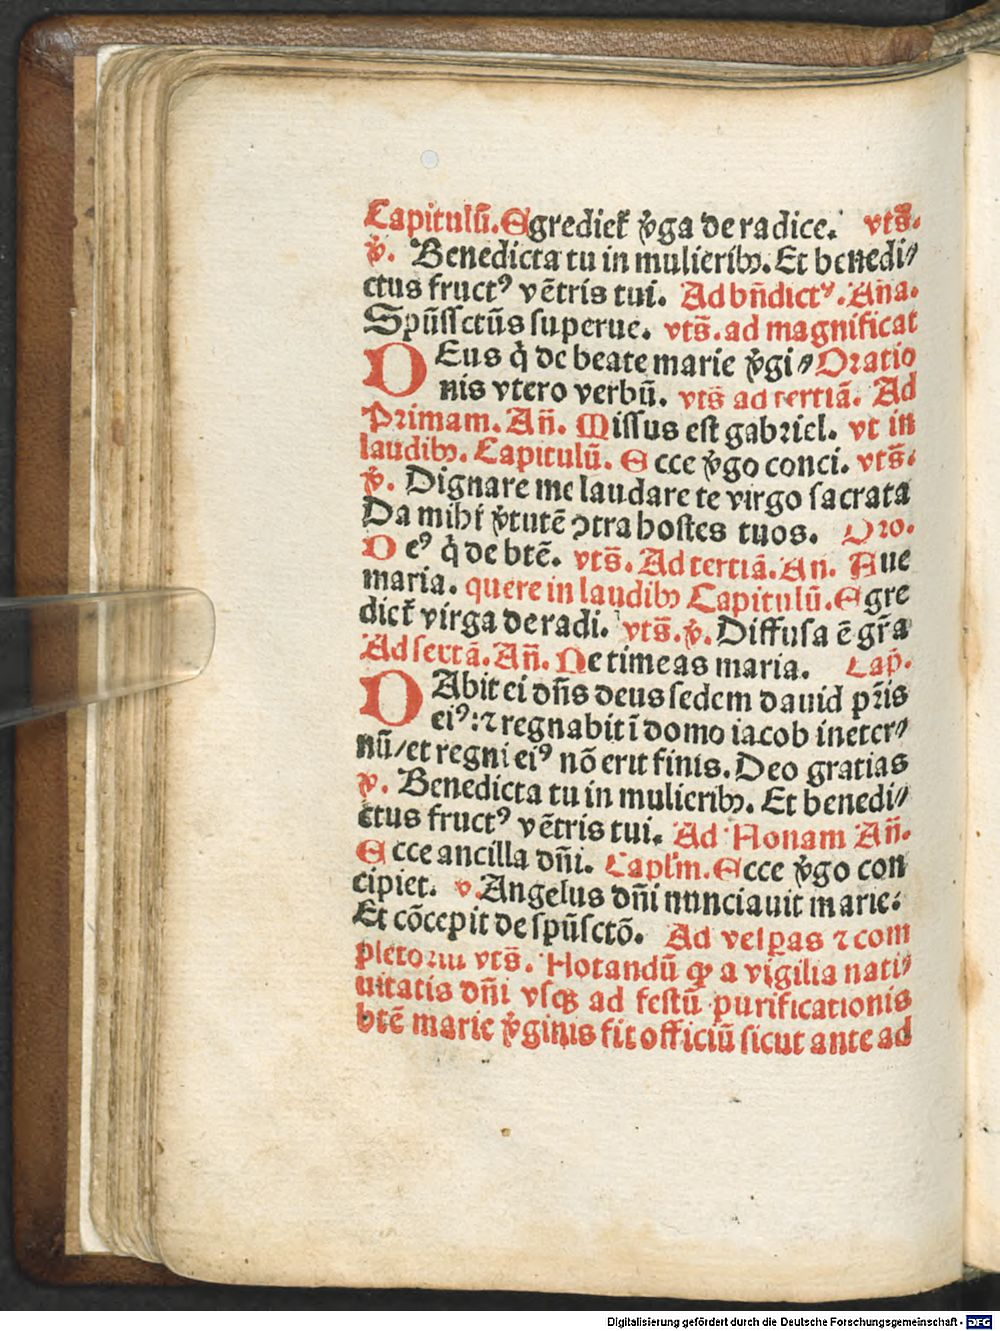 Capitulū. Egrediet̄ v̾ga de radice. vts̄.
v̾. Benedicta tu in mulieribꝫ. Et benedi⸗
ctus fructꝰ vētris tui. Ad bn̄dictꝰ. Ān̄a.
Spūssctūs superue. vts̄. ad magnificat
DEus q̄ de beate marie v̾gi⸗ Oratio
nis vtero verbū. vts̄ ad tertiā. Ad
Primam. An̄. Missus est gabriel. vt in
laudibꝫ. Capitulū. Ecce v̾go conci. vts̄.
v̾. Dignare me laudare te virgo sacrata
Da mihi v̾tutē ꝯtra hostes tuos. Oro.
Deꝰ q̄ de btē. vts̄. Ad tertiā. An. Aue
maria. quere in laudibꝫ Capitulū. Egre
diet̄ virga de radi. vts̄. v̾. Diffusa ē gr̄a
Ad sextā. An̄. Ne timeas maria. Cap̄.
DAbit ei dn̄s deus sedem dauid pr̄is
eiꝰ: ⁊ regnabit ī domo iacob in eter⸗
nū/ et regni eiꝰ nō erit finis. Deo gratias
v̾. Benedicta tu in mulieribꝫ. Et benedi⸗
ctus fructꝰ vētris tui. Ad Nonam An̄.
Ecce ancilla dn̄i. Capl'm. Ecce v̾go con
cipiet. v. Angelus dn̄i nunciauit marie:
Et cōcepit de spūsctō. Ad vesꝑas ⁊ com
pletoriu vts̄. Notandū ꝙ a vigilia nati⸗
uitatis dn̄i vsqꝫ ad festū purificationis
btē marie v̾ginis fit officiū sicut ante ad
Digitalisierung gefördert durch die Deutsche Forschungsgemeinschaft - DFG